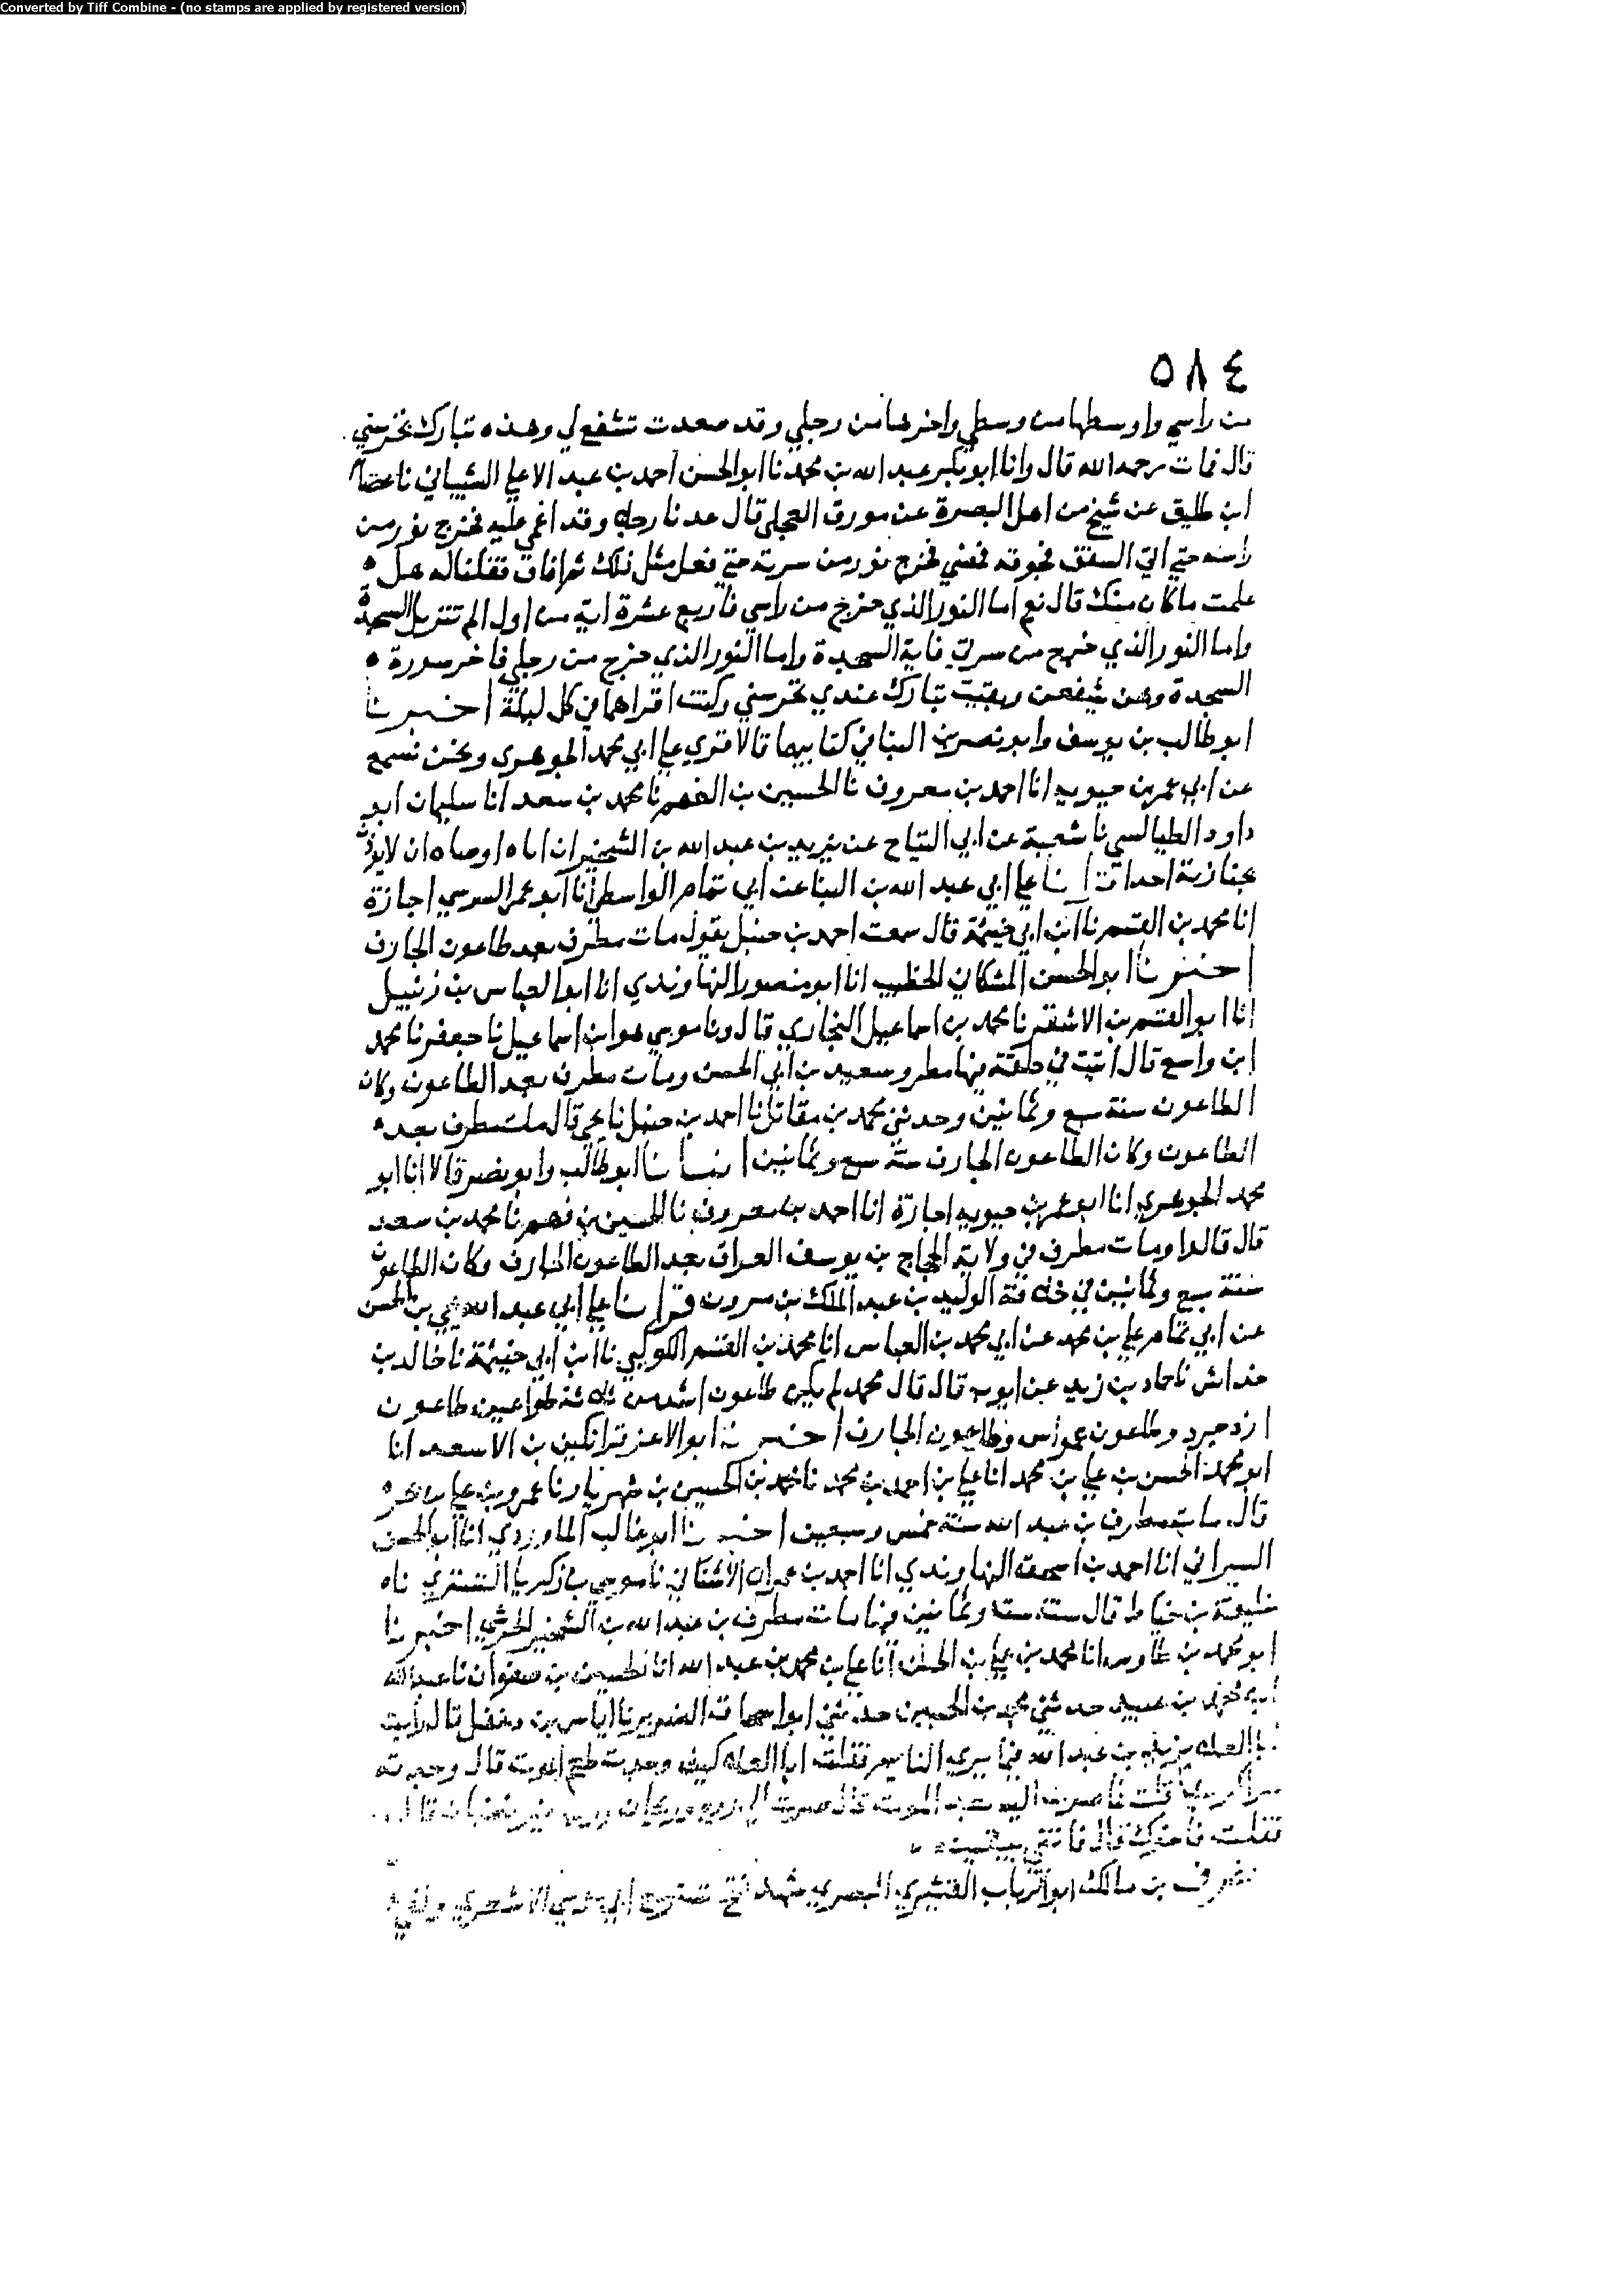 Converted by Tiff Combine - (no stamps are applied by registered version)
٥٨٤
من راسي واوسطها من وسطي واخرها من رجلي وقد صعدت تشفع لي وهذه تبارك تحرسني
قال فمات رحمه الله قال وانا ابو بكر عبد الله بن محمد نا ابو الحسن احمد بن عبد الاعلي الشيباني نا
ابن طليق عن شيخ من اهل البصرة عن مورق العجلي قال عدنا رجلا وقد اغمي عليه فخرج نور من
راسه حتي اتي السقف فخرقه فمضي فخرج نور من سرته حتي فعل مثل ذلك ثم افاق فقلنا له هل
علمت ما كان منك قال نعم اما النور الذي خرج من راسي فاربع عشرة اية من اول الم تنزيل السجدة
واما النور الذي خرج من سرتي فاية السجدة واما النور الذي خرج من رجلي فاخر سورة
السجدة وهن شفعن وبقيت تبارك عندي تحرسني وكنت اقراهما في كل ليلة اخبرنا
ابو طالب بن يوسف وابو نصر بن البنا في كتابيهما قالا قري علي ابي محمد الجوهري ونحن نسمع
عن ابي عمر بن حيويه انا احمد بن معروف نا الحسين بن الفهم نا محمد بن سعد انا سليمان ابو
داود الطيالسي نا شعبة عن ابي التياح عن يزيد بن عبد الله بن الشخير ان اخاه اوصاه ان لا يوذن
بجنازته احدا علي ابي عبد الله بن البنا عن ابي تمام الواسطي انا ابو عمر السوسي اجازة
انا محمد بن القسم نا ابن ابي خيثمة قال سمعت احمد بن حنبل يقول مات مطرف بعد طاعون الجارف
اخبرنا ابو الحسن المشكاني الخطيب انا ابو منصور النهاوندي انا ابو العباس بن زنبيل
انا ابو القسم بن الاشقر نا محمد بن اسماعيل البخاري قال ونا موسي هو ابن اسماعيل نا جعفر نا محمد
ابن واسع قال اتيت في حلقة فيها مطرف وسعيد بن ابي الحسن ومات مطرف بعد الطاعون وكان
الطاعون سنة سبع وثمانين وحدثني محمد بن مقاتل نا احمد بن حنبل نا يحي قال مات مطرف بعد
الطاعون وكان الطاعون الجارف سنة سبع وثمانين انبانا ابو طالب وابو نصر قالا انا ابو
محمد الجوهري انا ابو عمر بن حيويه اجازة انا احمد بن معروف نا الحسين بن فهم نا محمد بن سعد
قال قالوا ومات مطرف في ولاية الحجاج بن يوسف العراق بعد الطاعون الجارف وكان الطاعون
سنة سبع وثمانين في خلافة الوليد بن عبد الملك بن مرون قرانا علي ابي عبد الله يحي بن الحسن
عن ابي تمام علي بن محمد عن ابي محمد بن العباس انا محمد بن القسم الكوكبي نا ابن ابي خيثمة نا خالد بن
خداش نا حماد بن زيد عن ايوب قال قال محمد لم يكن طاعون اشد من ثلاثة طواعين طاعون
ازدجرد وطاعون عمواس وطاعون الجارف اخبرنا ابو الاعز قراتكين بن الاسعد انا
ابو محمد الحسن بن علي بن محمد انا علي بن احمد بن محمد نا محمد بن الحسين بن شهريار نا عمرو بن علي بن بحر
قال مات مطرف بن عبد الله سنة خمس وسبعين اخبرنا ابو غالب الماوردي انا ابو الحسن
السيرافي انا احمد بن اسحق النهاوندي انا احمد بن عمران الاشناني نا موسي بن زكريا التستري نا
خليفة بن خياط قال سنة ستة وثمانين فيها مات مطرف بن عبد الله بن الشخير الحرشي اخبرنا
ابو محمد بن طاوس انا محمد بن علي بن الحسن انا علي بن محمد بن عبد الله انا الحسين بن صفوان نا عبد الله
بن محمد بن عبيد حدثني محمد بن الحسين حدثني ابو اسحاق الضرير نا اياس بن دغفل قال رايت
ابا العلاء يزيد بن عبد الله فيما يري النايم فقلت ابا العلاء كيف وجدت طعم الموت قال وجدته
قلت فما صرت اليه بعد الموت قال صرت الي روح وريحان ورب غير غضبان قال
فقلت فاخوك قال فاتني بيقينه
مطرف بن مالك ابو الرباب القشيري البصري شهد فتح تستر مع ابي موسي الاشعري ولقي